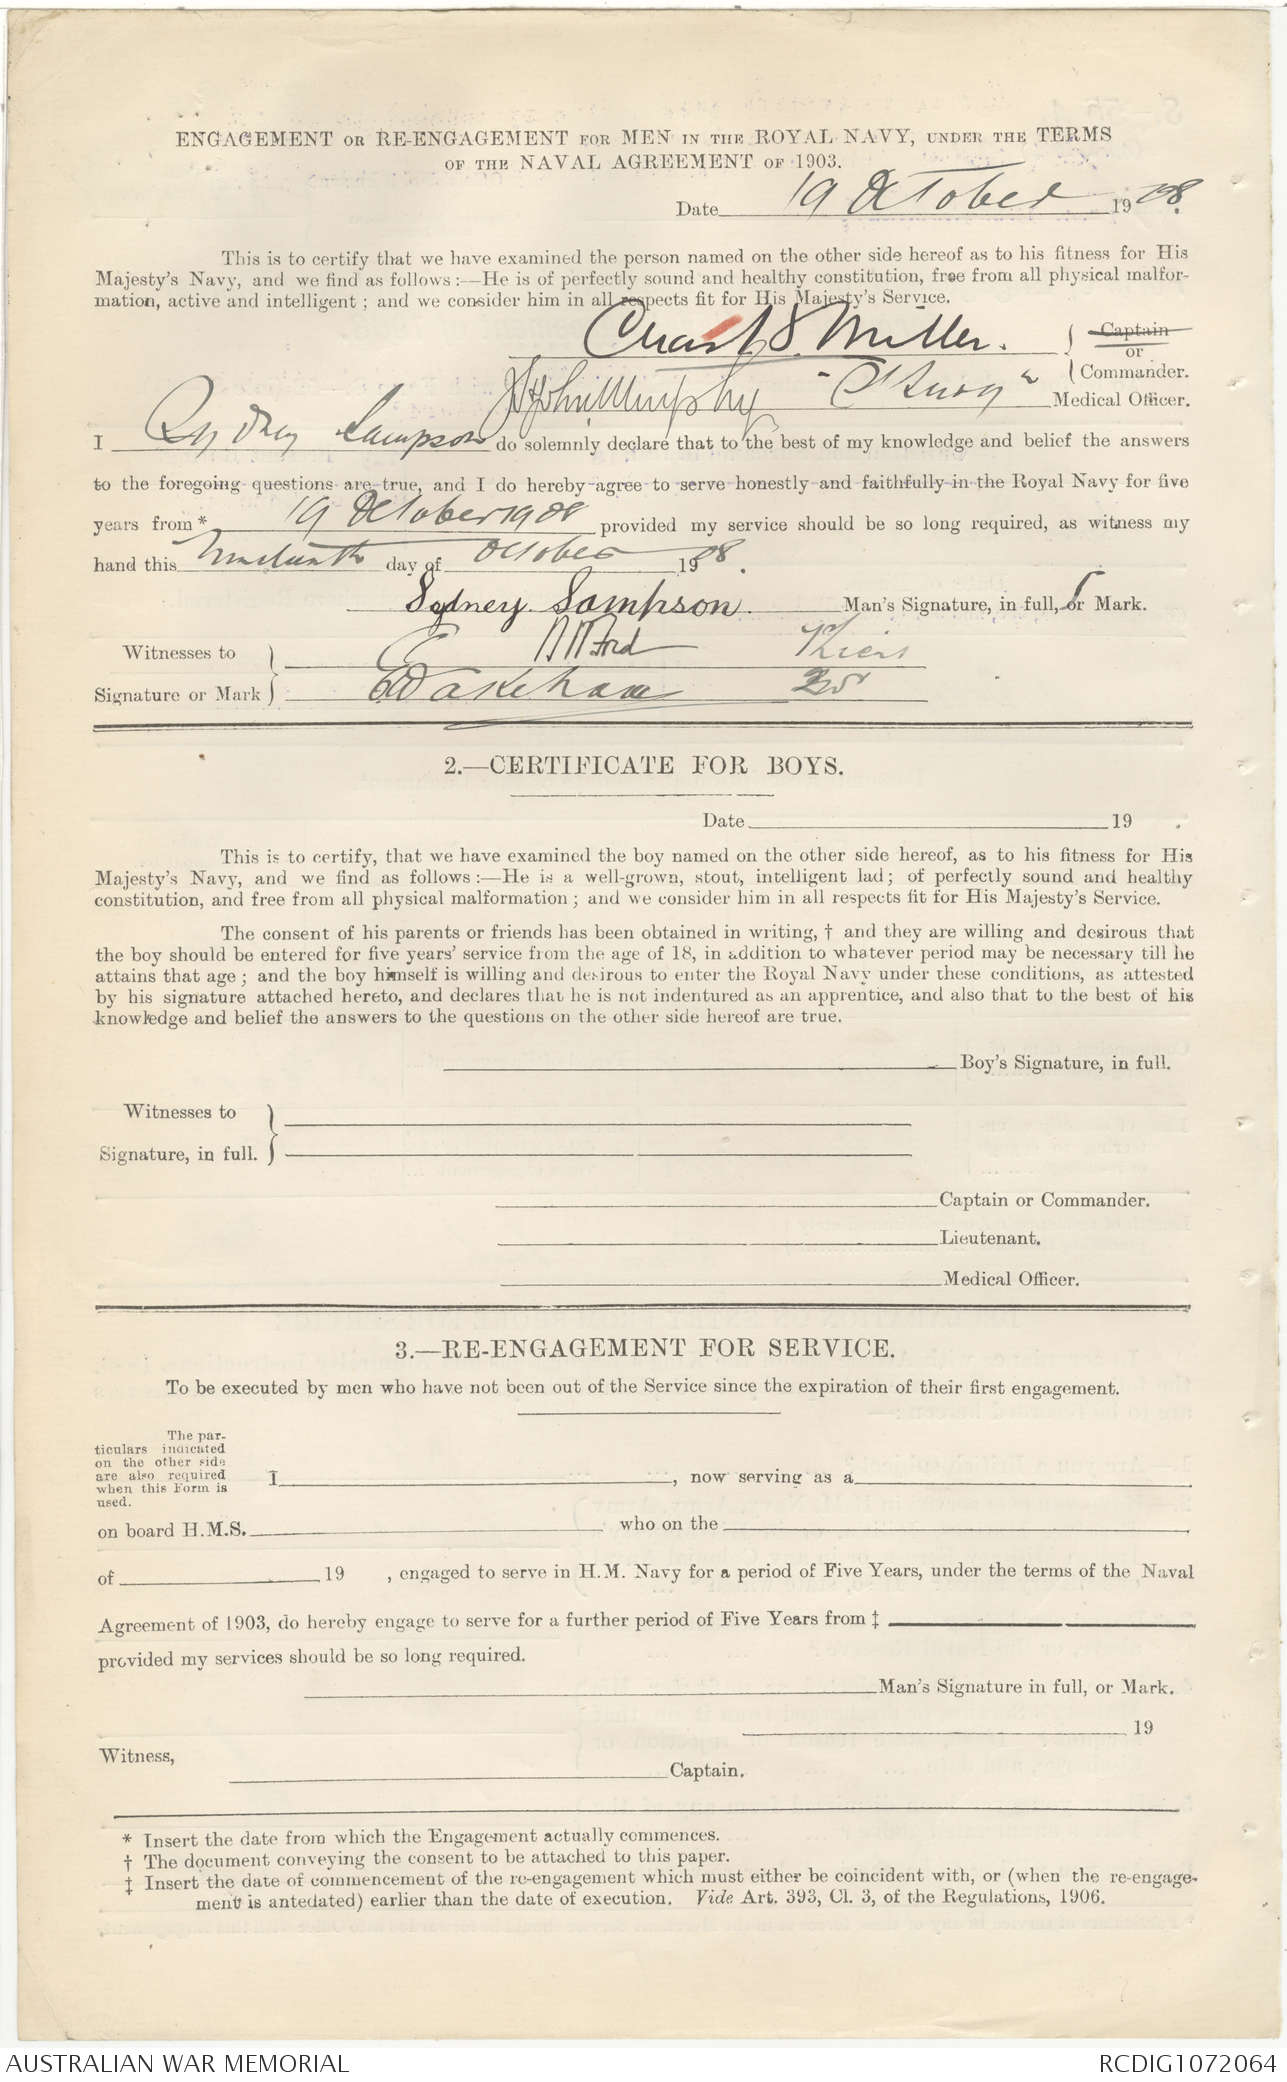 ENGAGEMENT OR RE-ENGAGEMENT FOR MEN IN THE ROYAL NAVY, UNDER THE TERMS
OF THE NAVAL AGREEMENT OF 1903.
Date 19 October 1908.
This is to certify that we have examined the person named on the other side hereof as to his fitness for His
Majesty's Navy, and we find as follows:—He is of perfectly sound and healthy constitution, free from all physical malfor-
mation, active and intelligent; and we consider him in all respects fit for His Majesty's Service.
Miller. Captain
or
Commander.
Murphy Medical Officer.
I Sydney Sampson do solemnly declare that to the best of my knowledge and belief the answers
to the foregoing questions are true, and I do hereby agree to serve honestly and faithfully in the Royal Navy for five
years from* 19 October 1908 provided my service should be so long required, as witness my
hand this Nineteenth day of October 1908.
Sydney Sampson. Man's Signature, in full, or Mark.
Witnesses to
Signature or Mark
2.—CERTIFICATE FOR BOYS.
Date 19 .
This is to certify, that we have examined the boy named on the other side hereof, as to his fitness for His
Majesty's Navy, and we find as follows:—He is a well-grown, stout, intelligent lad; of perfectly sound and healthy
constitution, and free from all physical malformation; and we consider him in all respects fit for His Majesty's Service.
The consent of his parents or friends has been obtained in writing, † and they are willing and desirous that
the boy should be entered for five years' service from the age of 18, in addition to whatever period may be necessary till he
attains that age; and the boy himself is willing and desirous to enter the Royal Navy under these conditions, as attested
by his signature attached hereto, and declares that he is not indentured as an apprentice, and also that to the best of his
knowledge and belief the answers to the questions on the other side hereof are true.
Boy's Signature, in full.
Witnesses to
Signature, in full.
Captain or Commander.
Lieutenant.
Medical Officer.
3.—RE-ENGAGEMENT FOR SERVICE.
To be executed by men who have not been out of the Service since the expiration of their first engagement.
The par-
ticulars indicated
on the other side
are also required
when this Form is
used.
I , now serving as a
on board H.M.S. who on the
of 19 , engaged to serve in H.M. Navy for a period of Five Years, under the terms of the Naval
Agreement of 1903, do hereby engage to serve for a further period of Five Years from ‡
provided my services should be so long required.
Man's Signature in full, or Mark.
19
Witness,
Captain.
* Insert the date from which the Engagement actually commences.
† The document conveying the consent to be attached to this paper.
‡ Insert the date of commencement of the re-engagement which must either be coincident with, or (when the re-engage-
ment is antedated) earlier than the date of execution. Vide Art. 393, Cl. 3, of the Regulations, 1906.
AUSTRALIAN WAR MEMORIAL
RCDIG1072064